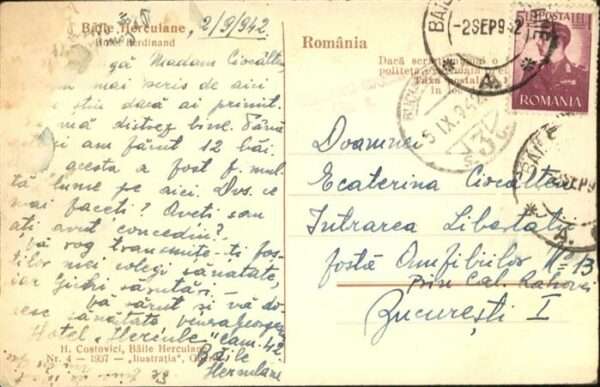 Băile Herculane, 2/9/942
Hotel Ferdinand
Madam Ciocâlteu
mai scris de aici
știu dacă ați primit.
mă distrez bine. Până
am făcut 12 băi.
acesta a fost f. mul-
tă lume pe aici. Dvs. ce
mai faceți? Aveți sau
ați avut concediu?
Vă rog transmite-ți foș-
tilor mei colegi sănătate,
iar
Vă sărut și vă do-
resc sănătate
Hotel „Hercule" cam. 42
Băile
Herculane
H. Costovici, Băile Herculane
Nr. 4 — 1937 — „Ilustrația",
România
Dacă
Taxa
BĂILE
-2SEP942
* A. *
5 IX. 942
POSTA
LEI
ROMANIA
BĂILE
SEP9
* A.
Doamnei
Ecaterina Ciocâlteu
Intrarea Libertății
fostă Amfibiilor No 13
prin Cal. Rahovei
București I